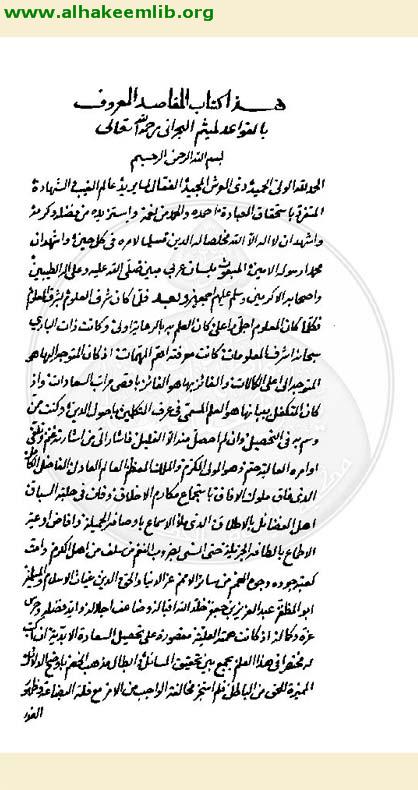 www.alhakeemlib.org
هذا كتاب المقاصد المعروف
بالقواعد لميثم البحراني رحمه الله تعالى
بسم الله الرحمن الرحيم
الحمد لله الولي الحميد ذي العرش المجيد الفعال لما يريد عالم الغيب و الشهادة
المتفرد باستحقاق العبادة احمده و الحمد من نعمه و استزيده من فضله و كرمه
و اشهد ان لا اله الا الله مخلصا له الدين تسليما لامره في كل حين و اشهد ان
محمدا رسوله الامين المبعوث بلسان عربي مبين صلى الله عليه و على اله الطيبين
و اصحابه الاكرمين و سلم عليهم اجمعين و بعد فلما كان شرف العلوم بشرف المعلوم
فكلما كان المعلوم اجل و اعلى كان العلم به بالرعاية اولى و كانت ذات الباري
سبحانه اشرف المعلومات كانت معرفته اهم المهمات اذ كان المتوجه اليها هو
المتوجه الى اعلى الكمالات و الفائز بها هو الفائز باقصى مراتب السعادات و اذ
كان المتكفل ببيانها هو العلم المسمى في عرف المتكلمين باصول الدين و كنت ممن
وسم به في التحصيل و ان لم احصل منه الا القليل فاشار الي من اشارته غنم و تلقي
اوامره العالية حتم و هو المولى المكرم و الملك المعظم العالم العادل الفاضل الكامل
الذي فاق ملوك الافاق باستجماع مكارم الاخلاق و فات في حلبة السباق
اهل الفضائل بالاطلاق الذي ملأ الاسماع باوصافه الجميلة و افاض اوعية
الاطماع بالطافه الجزيلة حتى انسى بضروب النعم من سلف من اهل الكرم و امت
كعبة جوده وجوه الهمم من سائر الامم عز الدنيا و الحق و الدين غياث الاسلام و المسلمين
ابو المظفر عبد العزيز بن جعفر خلد الله اقباله و ضاعف اجلاله و ابد فضله و حرس
عزه و كماله اذ كانت همته العلية مقصورة على تحصيل السعادة الابدية ان اكتب
له مختصرا في هذا العلم يجمع بين تحقيق المسائل و ابطال مذهب الخصم باوضح الدلائل
المميزة للحق من الباطل فلم استجز مخالفة الواجب من الامر مع قلة البضاعة و ظهور